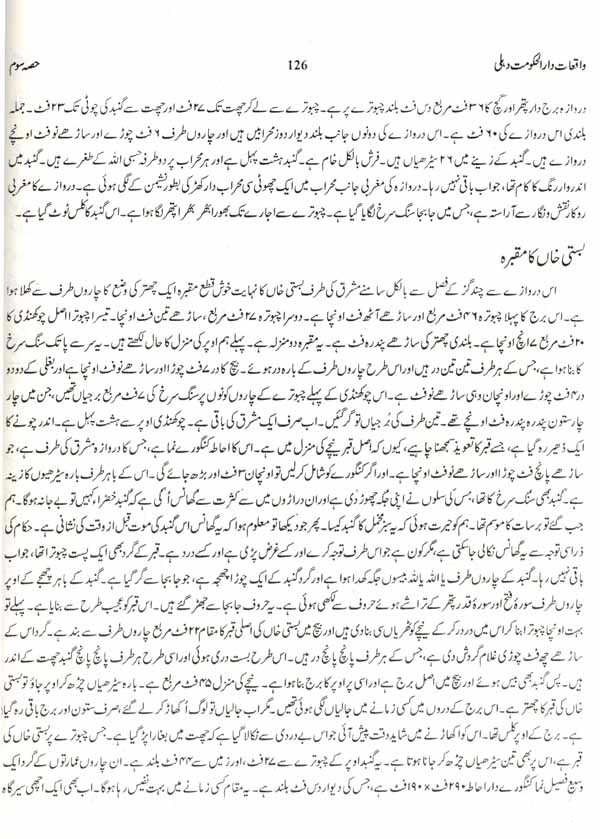 واقعات دارالحکومت دہلی 126 حصہ سوم
دروازہ برج دار پتھر اور گچ کا ۳۶ فٹ مربع دس فٹ بلند چبوترے پر ہے۔ چبوترے سے لے کر چھت تک ۲۷ فٹ اور چھت سے گنبد کی چوٹی تک ۲۳ فٹ۔ جملہ
بلندی اس دروازے کی ۶۰ فٹ ہے۔ اس دروازے کی دونوں جانب بلند دیوار دوز محرابیں ہیں اور چاروں طرف ۶ فٹ چوڑے اور ساڑھے نو فٹ اونچے
دروازے ہیں۔ گنبد کے زینے میں ۲۶ سیڑھیاں ہیں۔ فرش بالکل خام ہے۔ گنبد ہشت پہل ہے اور ہر محراب پر دو طرفہ حسبی اللہ کے طغرے ہیں۔ گنبد میں
اندروار رنگ کا کام تھا، جو اب باقی نہیں رہا۔ دروازہ کی مغربی جانب محراب میں ایک چھوٹی سی محراب دار کھڑکی بطور نشیمن کے لگی ہوئی ہے۔ دروازے کا مغربی
روکار نقش و نگار سے آراستہ ہے، جس میں جا بجا سنگ سرخ لگایا گیا ہے۔ چبوترے سے اجارے تک بھورا بھر بھرا پتھر لگا ہوا ہے۔ اس گنبد کا کلس ٹوٹ گیا ہے۔
بستی خاں کا مقبرہ
اس دروازے سے چند گز کے فصل سے بالکل سامنے مشرق کی طرف بستی خاں کا نہایت خوش قطع مقبرہ ایک چھتر کی وضع کا چاروں طرف سے کھلا ہوا
ہے۔ اس برج کا پہلا چبوترہ ۴۶ فٹ مربع اور ساڑھے آٹھ فٹ اونچا ہے۔ دوسرا چبوترہ ۲۷ فٹ مربع، ساڑھے تین فٹ اونچا۔ تیسرا چبوترا اصل چوکھنڈی کا
۲۰ فٹ مربع ۷ انچ اونچا ہے۔ بلندی چھتر کی ساڑھے پندرہ فٹ ہے۔ یہ مقبرہ دو منزلہ ہے۔ پہلے ہم اوپر کی منزل کا حال لکھتے ہیں۔ یہ سر سے پا تک سنگ سرخ
کا بنا ہوا ہے، جس کے ہر طرف تین تین در ہیں اور اس طرح چاروں طرف کے بارہ در ہوئے۔ بیچ کا در ۷ فٹ چوڑا اور ساڑھے نو فٹ اونچا ہے اور بغلی کے دو دو
در ۴ فٹ چوڑے اور اونچان وہی ساڑھے نو فٹ ہے۔ اس چوکھنڈی کے پہلے چبوترے کے چاروں کونوں پر سنگ سرخ کی ۷ فٹ مربع برجیاں تھیں، جن میں چار
چار ستون پندرہ پندرہ فٹ اونچے تھے۔ تین طرف کی بُرجیاں تو گر گئیں۔ اب صرف ایک مشرق کی باقی ہے۔ چوکھنڈی اوپر سے ہشت پہل ہے۔ اندر چونے کا
ایک ڈھیر رہ گیا ہے، جسے قبر کا تعویذ سمجھنا چاہیے، کیوں کہ اصل قبر نیچے کی منزل میں ہے۔ اس کا احاطہ کنگورے نما ہے، جس کا دروازہ مشرق کی طرف ہے، جو
ساڑھے پانچ فٹ چوڑا اور ساڑھے نو فٹ اونچا ہے۔ اور اگر کنگورے کو شامل کر لیں تو اونچان ۳ فٹ اور بڑھ جائے گی۔ اس کے باہر طرف بارہ سیڑھیوں کا زینہ
ہے۔ گنبد بھی سنگ سرخ کا تھا، جس کی سلوں نے اپنی جگہ چھوڑ دی ہے اور ان دراڑوں میں سے کثرت سے گھانس اُگی ہے کہ گنبد خضرا، کہیں تو بے جا نہ ہوگا۔ ہم
جب گئے تو برسات کا موسم تھا۔ ہم کو حیرت ہوئی کہ یہ سبز مخمل کا گنبد کیسا۔ پھر جو دیکھا تو معلوم ہوا کہ یہ گھانس اس گنبد کی موت قبل از وقت کی نشانی ہے۔ حکام کی
ذرا سی توجہ سے یہ گھانس نکالی جا سکتی ہے، مگر کون ہے جو اس طرف توجہ کرے اور کسے غرض پڑی ہے اور کسے درد ہے۔ قبر کے گرد بھی ایک پست چبوترا تھا، جو اب
باقی نہیں رہا۔ گنبد کے چاروں طرف یا اللہ یا اللہ بیسیوں جگہ کھدا ہوا ہے اور گرد گنبد کے ایک چوڑا چھجہ ہے، جو جا بجا سے گر گیا ہے۔ گنبد کے باہر چھجے کے اوپر
چاروں طرف سورۂ فتح اور سورۂ قدر پتھر کے تراشے ہوئے حروف سے لکھی ہوئی ہے۔ یہ حروف جا بجا سے جھڑ گئے ہیں۔ اس قبر کو عجیب طرح سے بنایا ہے۔ پہلے تو
بہت اونچا چبوترا بنا کر اس میں در در کر کے نیچے کوٹھریاں سی بنا دی ہیں اور بیچ میں بستی خاں کی اصلی قبر کا مقام ۲۲ فٹ مربع چاروں طرف سے بند ہے۔ گرد اس کے
ساڑھے چھ فٹ چوڑی غلام گردش دی ہے، جس کے ہر طرف پانچ پانچ در ہیں۔ اس طرح بست دری ہوئی اور اسی طرح ہر طرف پانچ پانچ گنبد چھت کے اندر
ہیں۔ پس گنبد بھی بیس ہوئے اور بیچ میں اصل برج ہے اور اسی پر اوپر کا برج بنا ہوا ہے۔ نیچے کی منزل ۴۵ فٹ مربع ہے۔ بارہ سیڑھیاں چڑھ کر اوپر جاؤ تو بستی
خاں کی قبر کا چھتر ہے۔ اس برج کے دروں میں کسی زمانے میں جالیاں لگی ہوئی تھیں۔ مگر اب جالیاں تو لوگ اُکھاڑ کر لے گئے، صرف ستون اور برج باقی رہ گیا
ہے۔ برج کے اوپر کلس تھا۔ اس کو اکھاڑنے میں شاید دقت پیش آئی جو اس بے دردی سے نکالا گیا ہے کہ چھت میں بغارا پڑ گیا ہے۔ جس چبوترے پر بستی خاں کی
قبر ہے، اس پر بھی تین سیڑھیاں چڑھ کر جانا ہوتا ہے۔ یہ گنبد اوپر کے چبوترے سے ۲۷ فٹ، اور زمیں سے ۴۴ فٹ بلند ہے۔ ان چاروں عمارتوں کے گرد ایک
وسیع فصیل نما کنگورے دار احاطہ ۲۹۰ فٹ × ۱۹۰ فٹ ہے، جس کی دیوار دس فٹ بلند ہے۔ یہ مقام کسی زمانے میں بہت نفیس رہا ہوگا۔ اب بھی ایک اچھی سیر گاہ